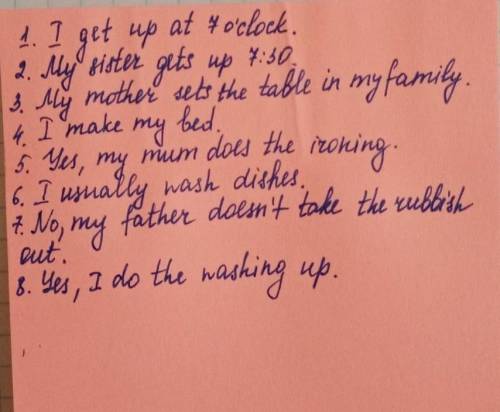 1. I get up at 7 o'clock.
2. My sister gets up 7:30.
3. My mother sets the table in my family.
4. I make my bed.
5. Yes, my mum does the ironing.
6. I usually wash dishes.
7. No, my father doesn't take the rubbish
out.
8. Yes, I do the washing up.